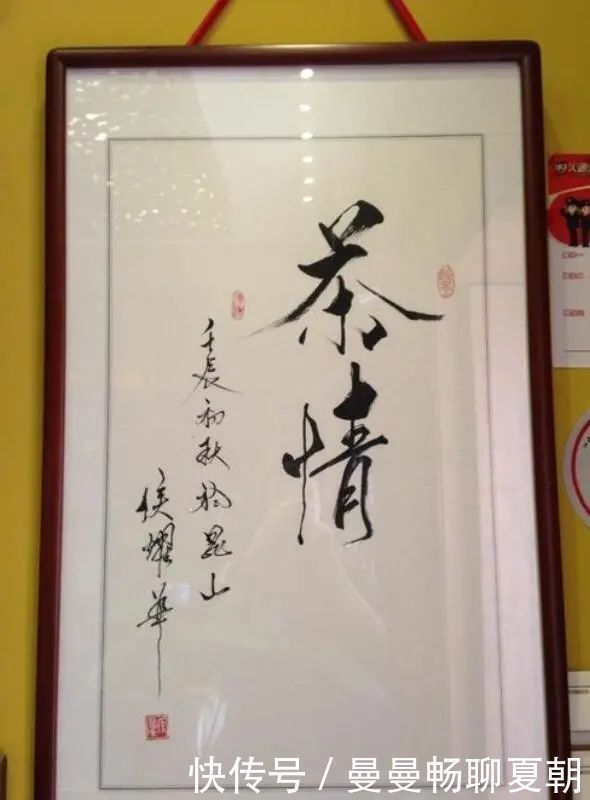 茶情
壬辰初秋於昆山
侯耀华
快传号 / 曼曼畅聊夏朝